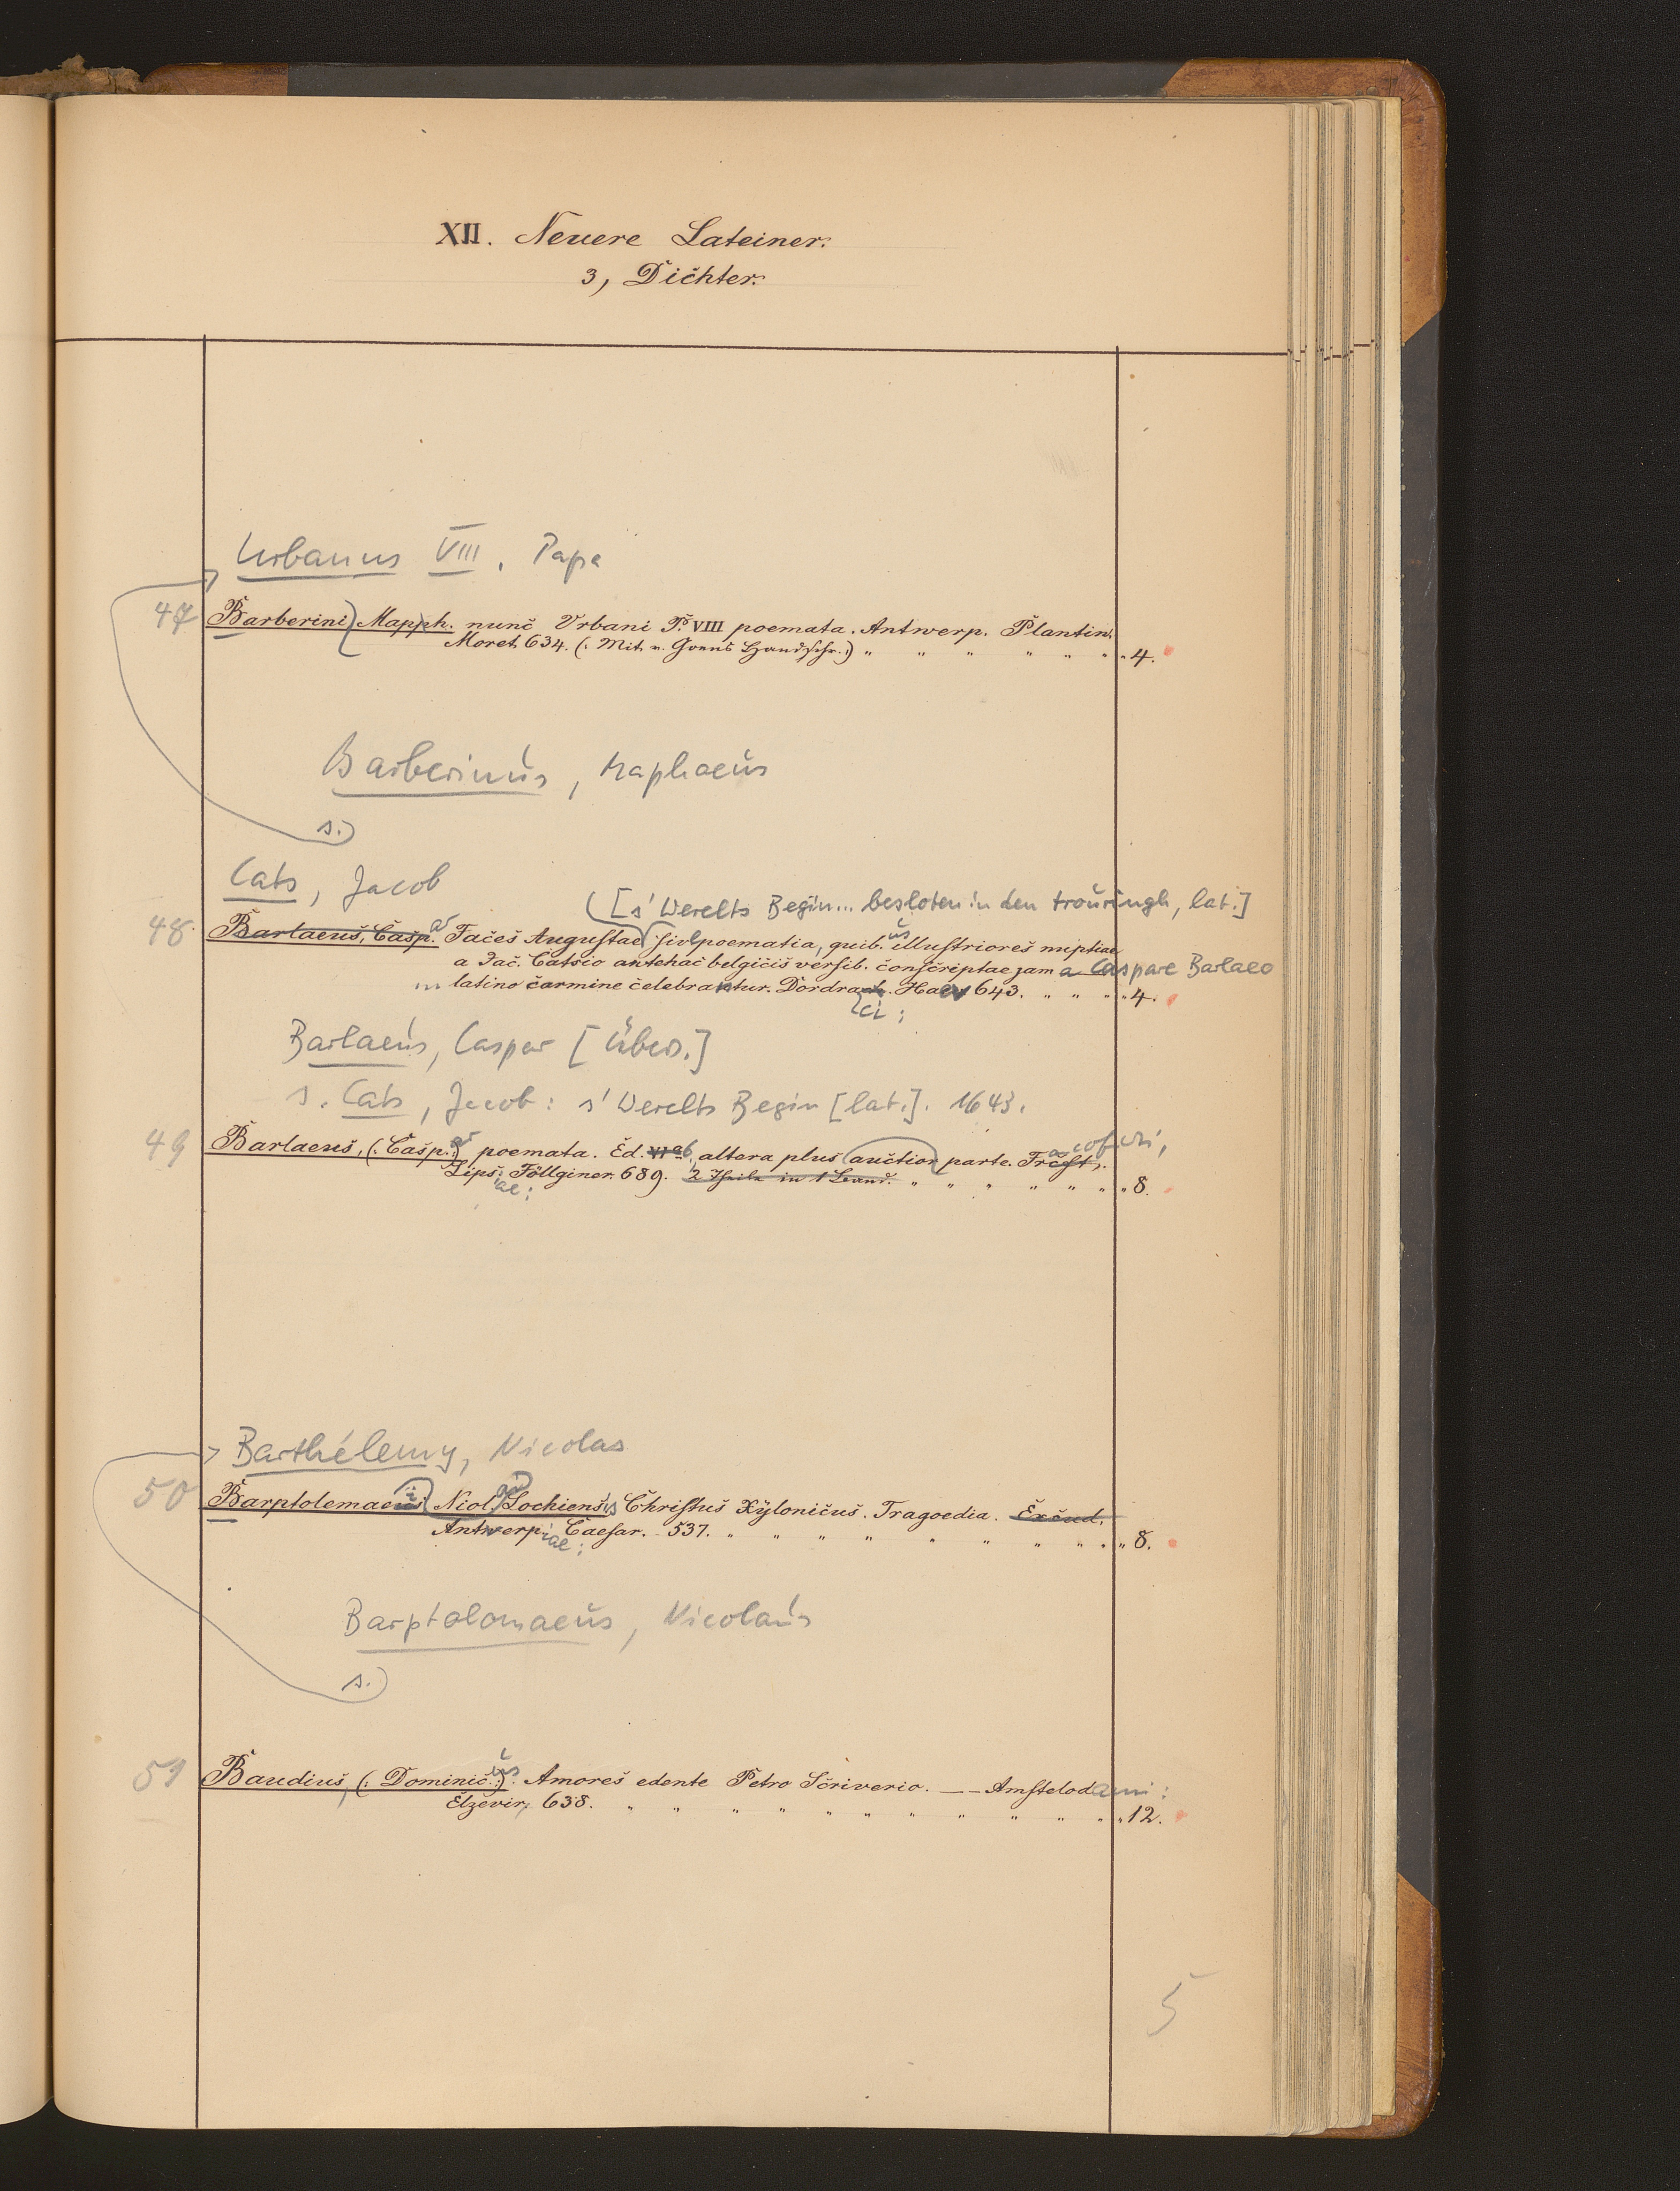 XII. Neuere Lateiner.
3, Dichter.
Urbanus VIII, Papa
47 Barberini, Mapph. nunc Urbani P. VIII poemata. Antwerp. Plantin.
Moret. 634. (: Mit v. Goens Handschr. :) " " " " " " " 4.
Barberinus, Maphaeus
s.
Cats, Jacob
[s' Werelts Begin... besloten in den trouringh, lat.]
48. Barlaeus, Casp.ar Faces Augustae sive poematia, quib.us illustriores nuptiae
a Jac. Catsio antehac belgicis versib. conscriptae jam a Caspare Barlaeo
latino carmine celebrantur. Dordraci: Hav 643. " " " " 4.
Barlaeus, Caspar [Übers.]
s. Cats, Jacob: s' Werelts Begin [lat.]. 1643.
49 Barlaeus, (: Casp.ar :) poemata. Ed. altera plus auctior parte. Fracofurti,
Lips.iae: Föllginer. 689. 2 Theile in 1 Band. " " " " " " " 8.
Barthélemy, Nicolas
50 Barptolemaeus Nicol. Lochiensis Christus Xylonicus. Tragoedia. Excud.
Antwerpiae: Caesar. 537. " " " " " " " " " 8.
Barptolomaeus, Nicolaus
s.
51 Baudius, (: Dominic.us :) Amores edente Petro Scriverio. — Amstelodami:
Elzevir, 638. " " " " " " " " " " " " 12.
5